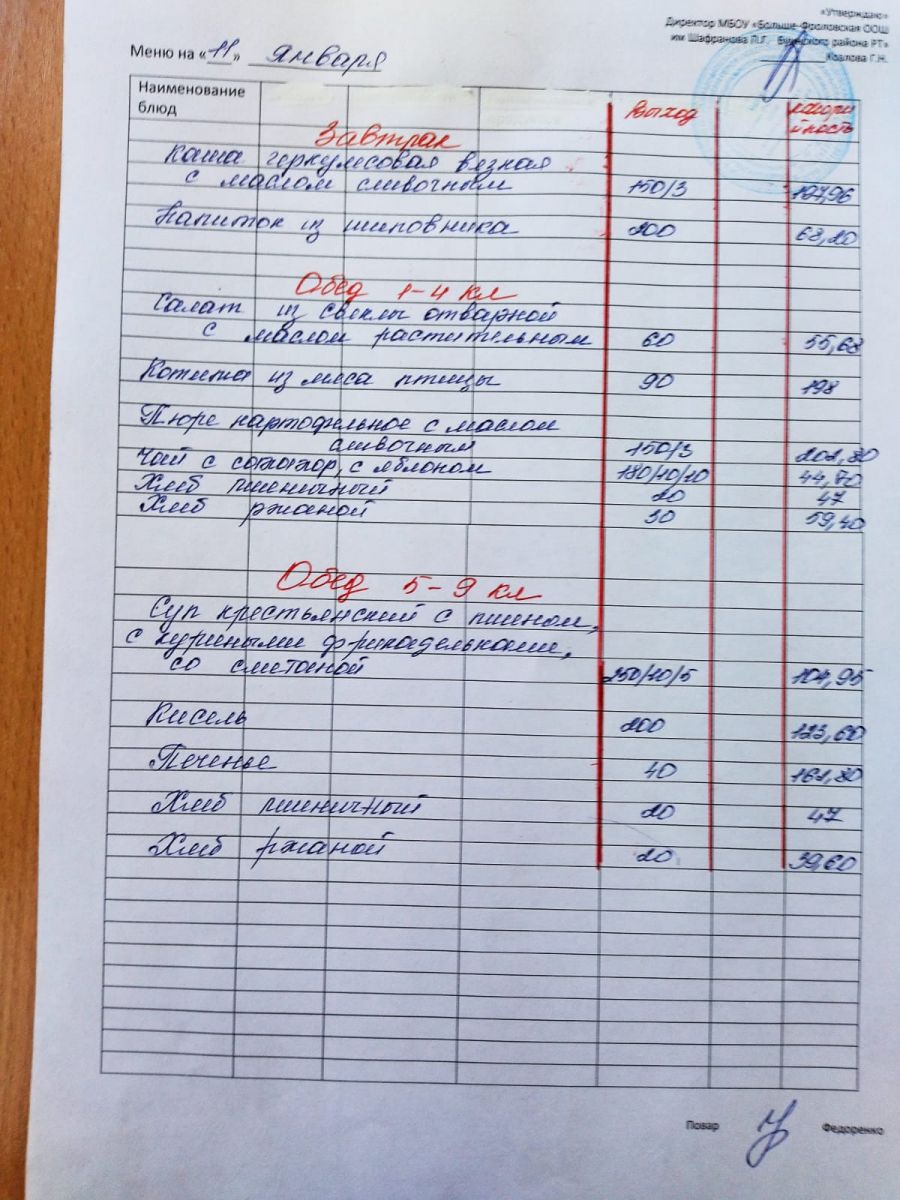 «Утверждаю»
Директор МБОУ «Больше-Фроловская ООШ
им Шафранова П.Г. Буинского района РТ»
Козлова Г.Н.
Меню на «11» января
Наименование блюд Выход калорийность
Завтрак
Каша геркулесовая вязная
с маслом сливочным 150/3 127,96
Напиток из шиповника 200 68,20
Обед 1-4 кл
Салат из свеклы отварной
с маслом растительным 60 55,68
Котлета из мяса птицы 90 198
Пюре картофельное с маслом
сливочным 150/3 202,80
Чай с сахаром, с яблоком 180/10/10 44,70
Хлеб пшеничный 20 47
Хлеб ржаной 30 59,40
Обед 5-9 кл
Суп крестьянский с пшеном,
с куриными фрикадельками,
со сметаной 250/10/5 104,95
Кисель 200 123,60
Печенье 40 161,80
Хлеб пшеничный 20 47
Хлеб ржаной 20 39,60
Повар Федоренко